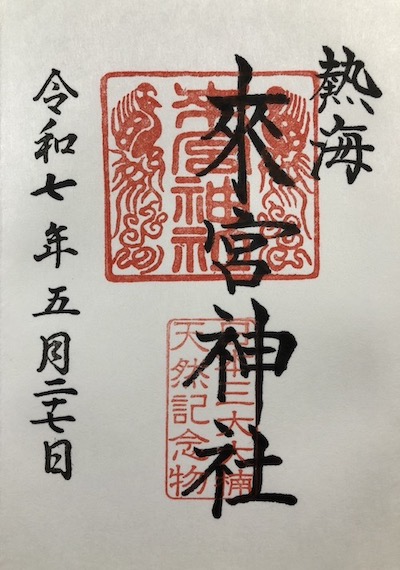 熱海
來宮神社
令和七年五月二十七日
來宮神社
日本三大大楠
天然記念物